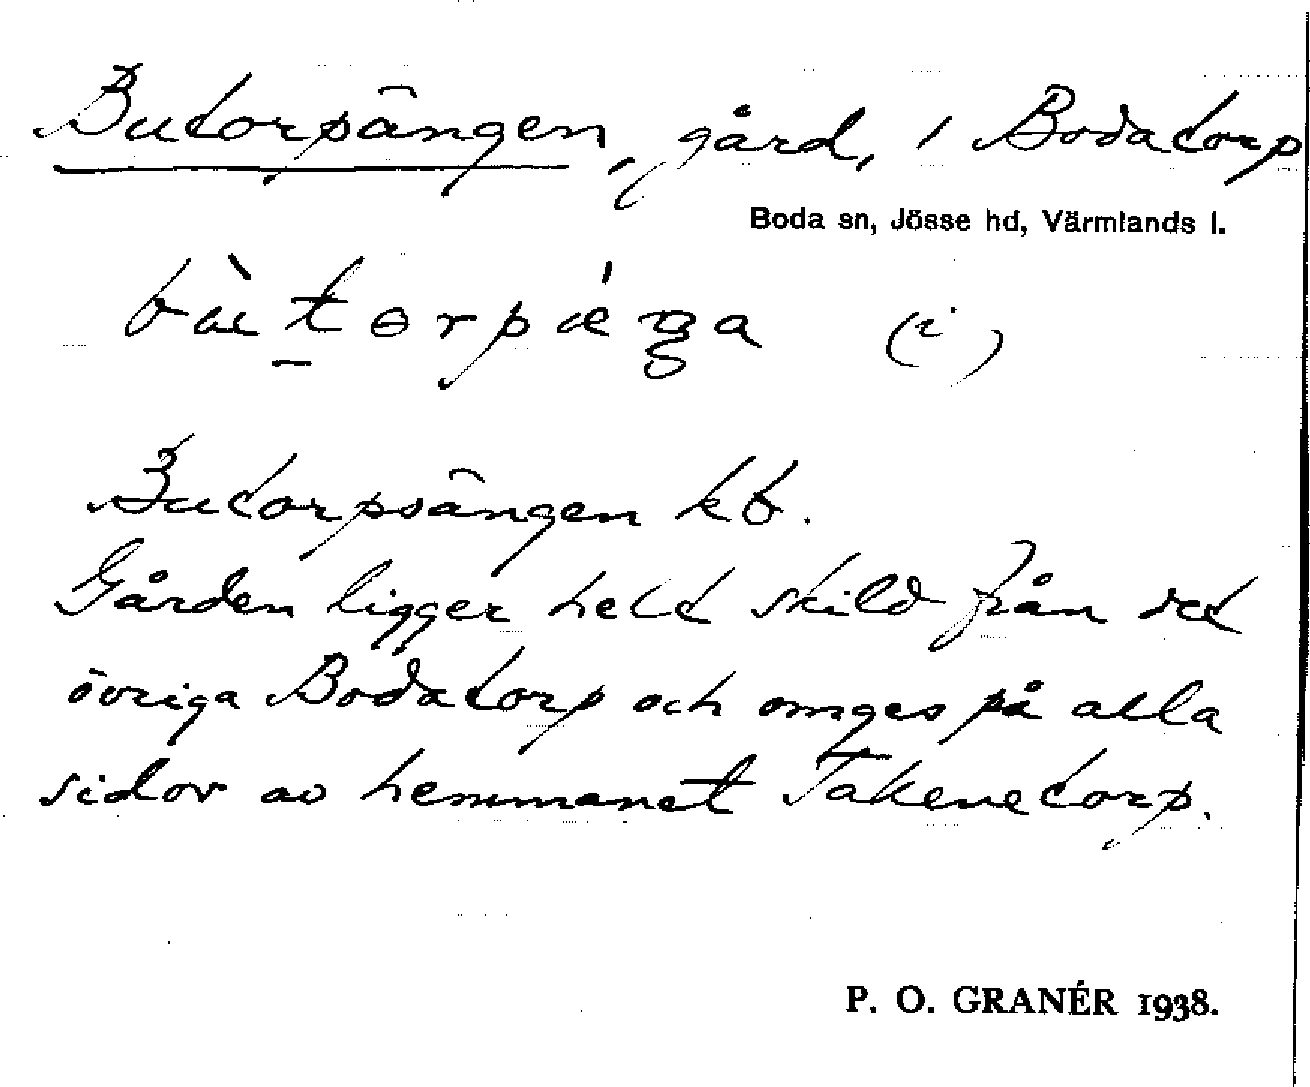 Butorpängen, gård, i Bodatorp
Boda sn, Jösse hd, Värmlands l.
(i)
Butorpsängen kb.
Gården ligger helt skild från det
övriga Bodatorp och omges på alla
sidor av hemmanet Takenetorp.
P. O. GRANÉR 1938.